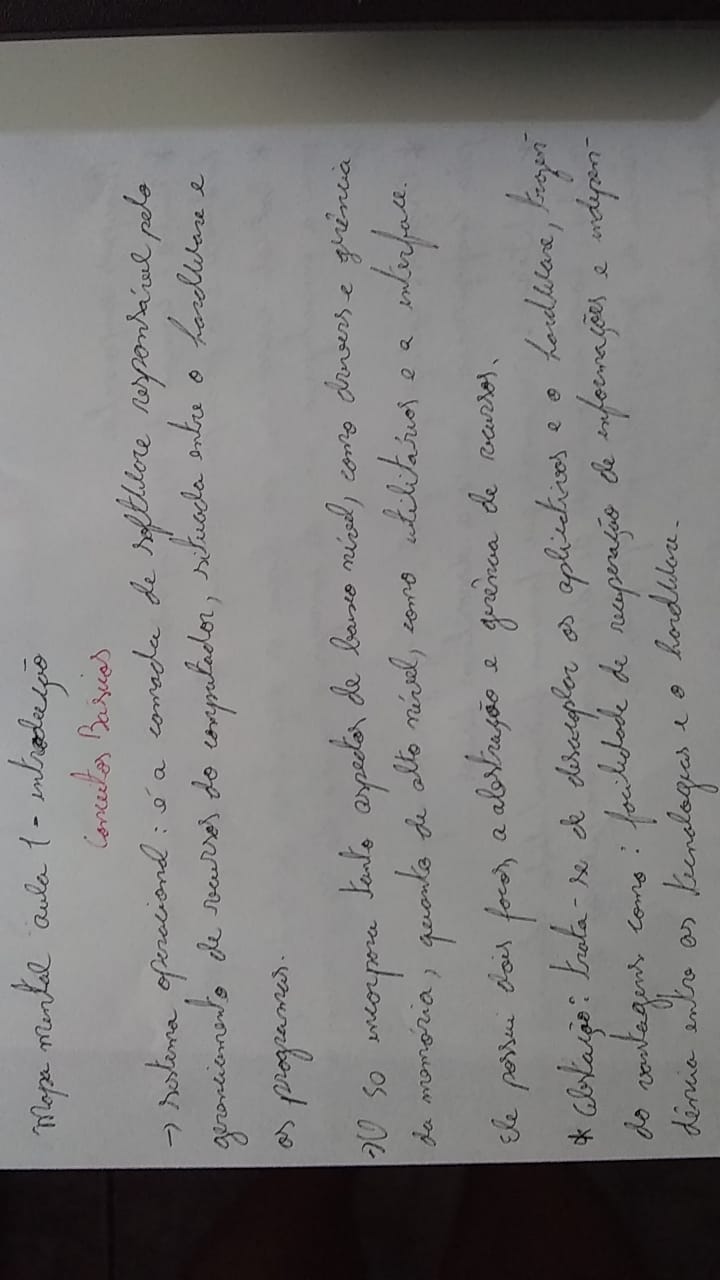 Mapa mental aula 1 - introdução
Conceitos Basicos
→ sistema operacional: é a camada de software responsável pelo
gerenciamento de recursos do computador, situada entre o hardware e
os programas.
→ O SO incorpora tanto aspectos de baixo nível, como drivers e gerência
da memória, quanto de alto nível, como utilitários e a interface.
Ele possui dois focos, a abstração e gerência de recursos.
* Abstação: trata-se de desacoplar os aplicativos e o hardware, trazen-
do vantagens como: facilidade de recuperação de informações e indepen-
dência entre as tecnologias e o hardware.